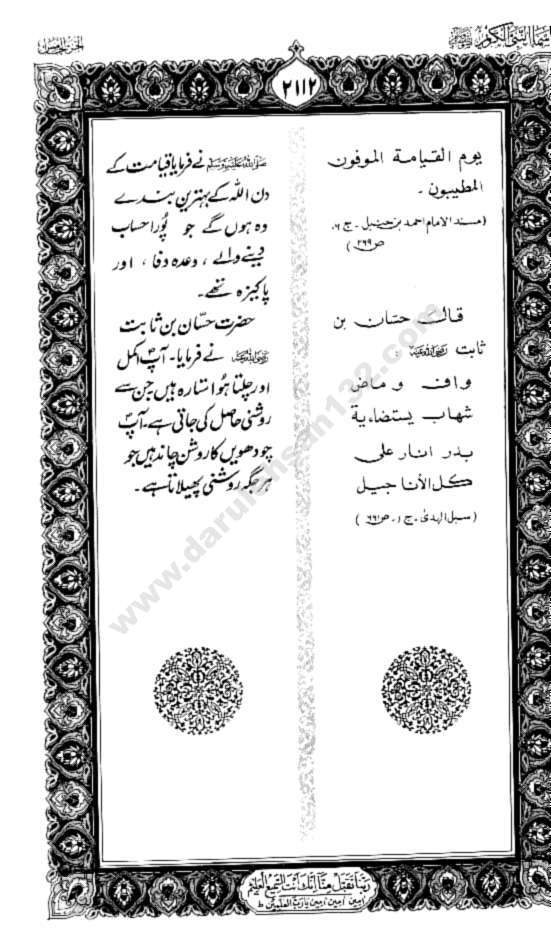 ۲۱۱۲
يوم القيامة الموفون
المطيبون۔
(مسند الامام احمد بن حنبل۔ ج ۶۔
ص ۲۶۹)
قال حسّان بن
ثابت رضی اللہ عنہ :
واف و ماض
شهاب يستضاء به
بدر انار على
كل الأناجيل
(سبل الہدیٰ۔ ج ۱۔ ص ۶۶۱)
صلی اللہ علیہ وسلم نے فرمایا قیامت کے
دن اللہ کے بہترین بندے
وہ ہوں گے جو پُورا حساب
دینے والے ، وعدہ وفا ، اور
پاکیزہ تھے۔
حضرت حسّان بن ثابت
رضی اللہ عنہ نے فرمایا۔ آپؐ اکمل
اور چلتا ہُوا ستارہ ہیں جن سے
روشنی حاصل کی جاتی ہے۔ آپؐ
چودھویں کا روشن چاند ہیں جو
ہر جگہ روشنی پھیلاتا ہے۔
www.darulehsan132.com
ربنا تقبل منا انك انت السميع العليم
امين امين امين يارب العلمين ط